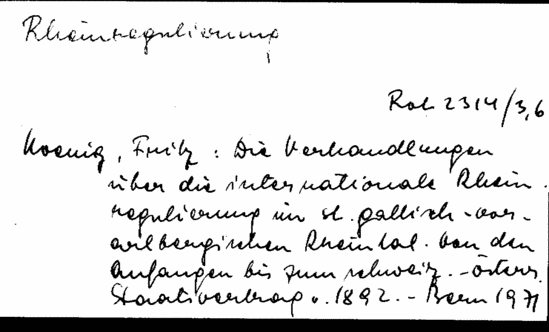 Rheinregulierung
Rol 2314/3,6
Koenig, Fritz: Die Verhandlungen
über die internationale Rhein-
regulierung im st. gallisch-vor-
arlbergischen Rheintal. Von den
Anfängen bis zum schweiz.-österr.
Staatsvertrag v. 1892.- Bern 1971